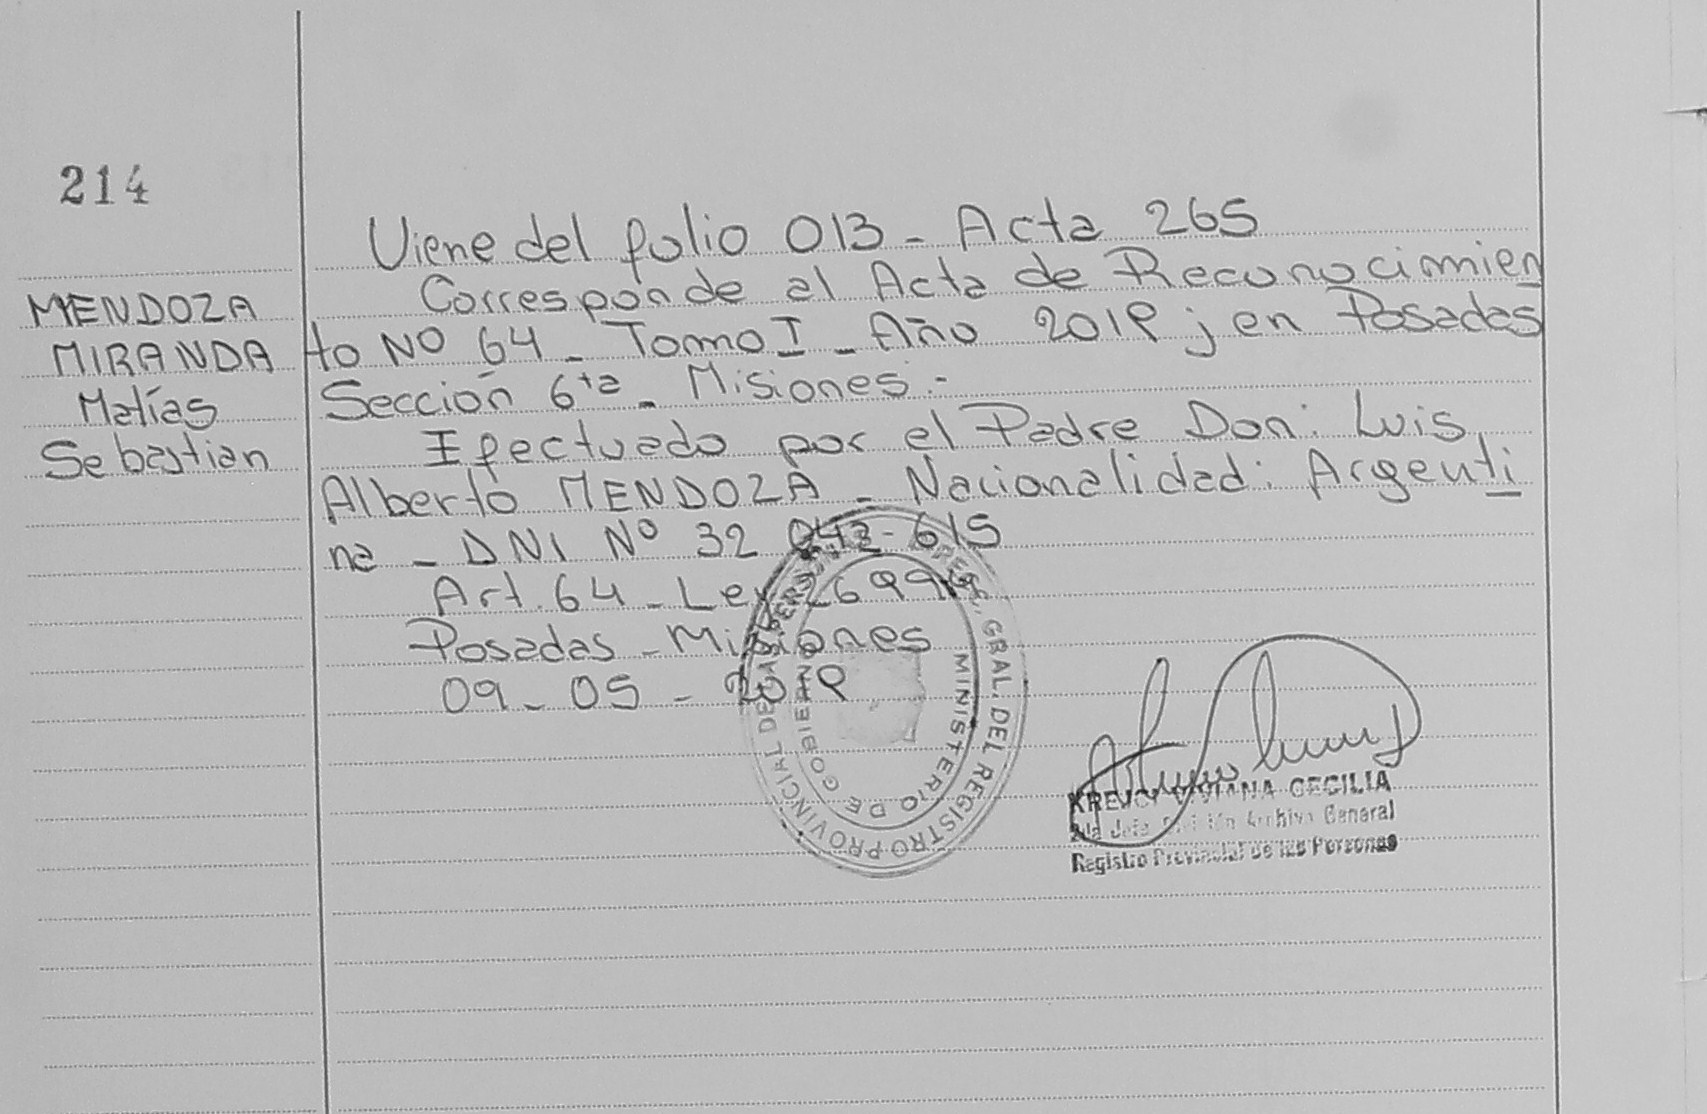 214
Viene del folio 013 - Acta 265
Corresponde al Acta de Reconocimien
to Nº 64 - Tomo I - Año 2019 ; en Posadas
Sección 6ta - Misiones.-
Efectuado por el Padre Don: Luis
Alberto MENDOZA - Nacionalidad: Argenti
na - DNI Nº 32 043-615
Art. 64 - Ley 26994
Posadas - Misiones
09 - 05 - 2019
MENDOZA
MIRANDA
Matías
Sebastian
GRAL. DEL REGISTRO PROVINCIAL DE LAS
MINISTERIO DE GOBIERNO
VIVIANA CECILIA
Archivo General
Registro Provincial de las Personas